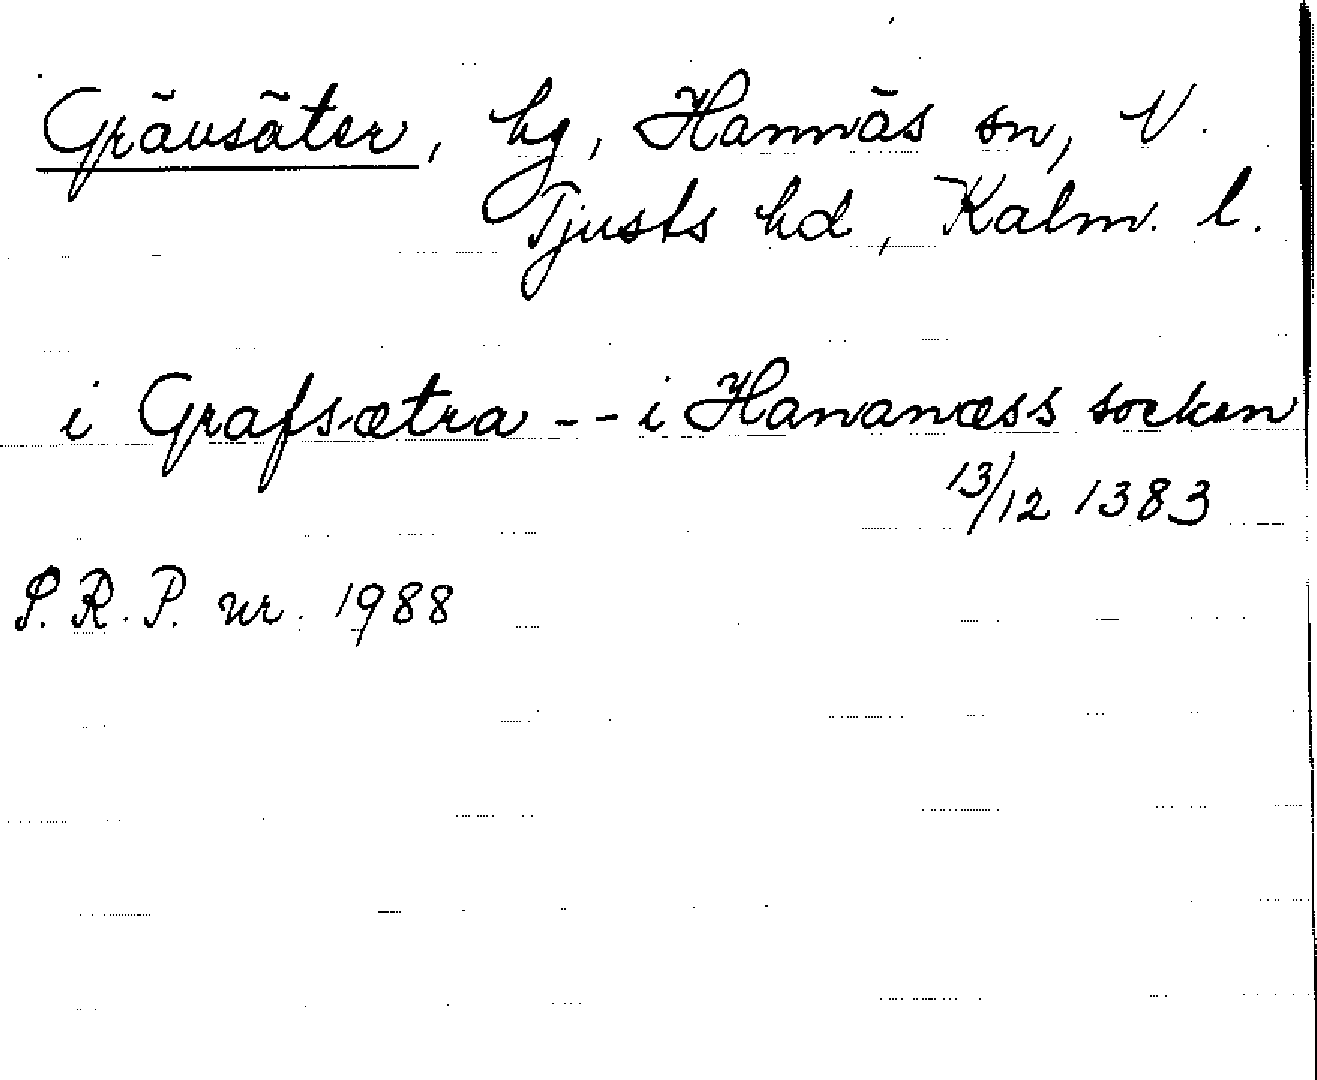 Grävsäter, hg, Hannäs sn, N.
Tjusts hd, Kalm. l.
i Grafsætra -- i Hananæss sockn
13/12 1383
S.R.P. nr. 1988